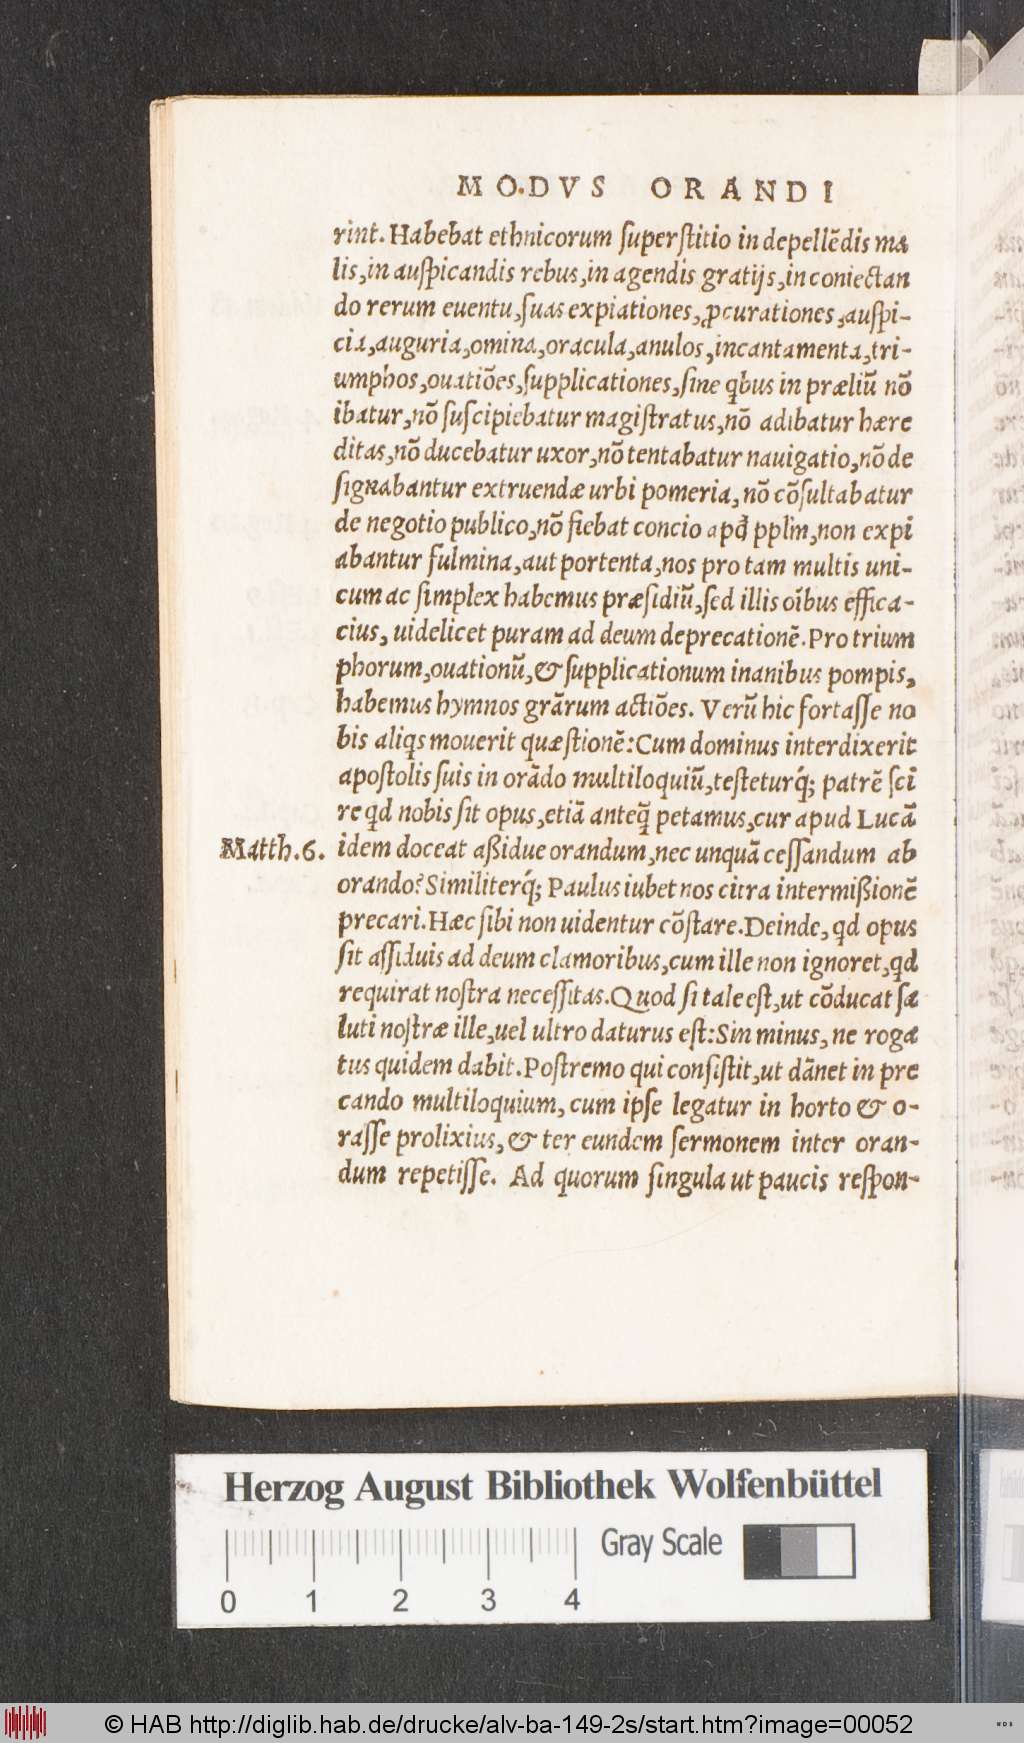 MO.DVS ORANDI
rint. Habebat ethnicorum ſuperſtitio in depellēdis ma
lis, in auſpicandis rebus, in agendis gratijs, in coniectan
do rerum euentu, ſuas expiationes, ꝓcurationes, auſpi-
cia, auguria, omina, oracula, anulos, incantamenta, tri-
umphos, ouatiōes, ſupplicationes, ſine qbus in præliū nō
ibatur, nō ſuſcipiebatur magiſtratus, nō adibatur hære
ditas, nō ducebatur uxor, nō tentabatur nauigatio, nō de
ſignabantur extruendæ urbi pomeria, nō cōſultabatur
de negotio publico, nō fiebat concio apđ pplm̄, non expi
abantur fulmina, aut portenta, nos pro tam multis uni-
cum ac ſimplex habemus præſidiū, ſed illis oībus effica-
cius, uidelicet puram ad deum deprecationē. Pro trium
phorum, ouationū, & ſupplicationum inanibus pompis,
habemus hymnos grārum actiōes. Verū hic fortaſſe no
bis aliqs mouerit quæſtionē: Cum dominus interdixerit
apoſtolis ſuis in orādo multiloquiū, teſteturq́; patrē ſci
re qd nobis ſit opus, etiā anteq̄ petamus, cur apud Lucā
Matth. 6. idem doceat aßidue orandum, nec unquā ceſſandum ab
orando? Similiterq́; Paulus iubet nos citra intermißionē
precari. Hæc ſibi non uidentur cōſtare. Deinde, qd opus
ſit aſſiduis ad deum clamoribus, cum ille non ignoret, qd
requirat noſtra neceſſitas. Quod ſi tale eſt, ut cōducat ſa
luti noſtræ ille, uel ultro daturus eſt: Sin minus, ne roga
tus quidem dabit. Poſtremo qui conſiſtit, ut dānet in pre
cando multiloquium, cum ipſe legatur in horto & o-
raſſe prolixius, & ter eundem ſermonem inter oran-
dum repetiſſe. Ad quorum ſingula ut paucis reſpon-
Herzog August Bibliothek Wolfenbüttel
Gray Scale
0 1 2 3 4
© HAB http://diglib.hab.de/drucke/alv-ba-149-2s/start.htm?image=00052